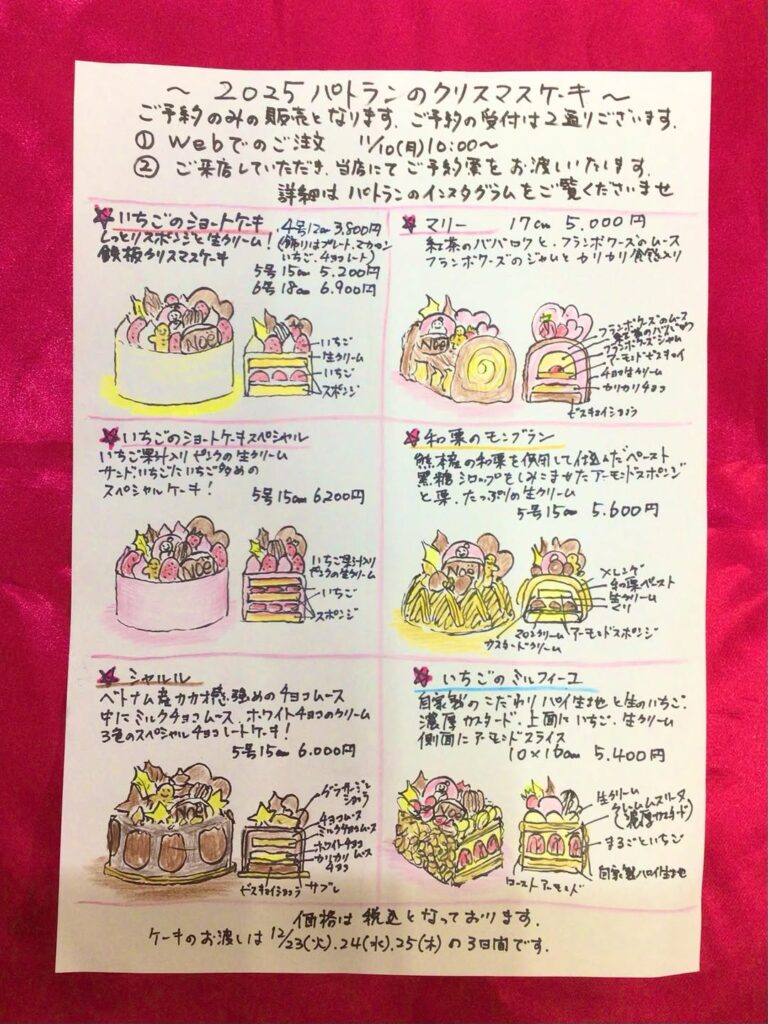 ～ 2025 パトランのクリスマスケーキ ～
ご予約のみの販売となります、ご予約の受付は2通りございます。
① Webでのご注文 11/10(月)10:00～
② ご来店していただき、当店にてご予約票をお渡しいたします。
詳細は パトランのインスタグラムをご覧くださいませ
いちごのショートケーキ
しっとりスポンジと生クリーム!
鉄板クリスマスケーキ
4号12cm 3.800円
(飾りはプレート、マカロン
いちご、チョコレート)
5号 15cm 5.200円
6号 18cm 6.900円
Noël
いちご
生クリーム
いちご
スポンジ
マリー 17cm 5.000円
紅茶のババロワと、フランボワーズのムース
フランボワーズのジャムとカリカリ食感入り
Noël
フランボワーズのムース
紅茶のババロワ
フランボワーズジャム
アーモンドビスキュイ
チョコ生クリーム
カリカリチョコ
ビスキュイショコラ
いちごのショートケーキスペシャル
いちご果汁入りピンクの生クリーム
サンドいちごたいちご多めの
スペシャルケーキ!
5号15cm 6.200円
Noël
いちご果汁入り
ピンクの生クリーム
いちご
スポンジ
和栗のモンブラン
熊本産の和栗を使用して仕込んだペースト
黒糖シロップをしみこませたアーモンドスポンジ
と栗、たっぷりの生クリーム
5号15cm 5.600円
Noël
メレンゲ
和栗ペースト
生クリーム
くり
マロンクリーム
アーモンドスポンジ
カスタードクリーム
シャルル
ベトナム産カカオ感強めのチョコムース
中にミルクチョコムース、ホワイトチョコのクリーム
3色のスペシャルチョコレートケーキ!
5号15cm 6.000円
グラサージュ
ショコラ
チョコムース
ミルクチョコムース
ホワイトチョコ
ムース
カリカリ
チョコ
ビスキュイショコラ
サブレ
いちごのミルフィーユ
自家製のこだわりパイ生地と生のいちご、
濃厚カスタード、上面にいちご、生クリーム
側面にアーモンドスライス
10×16cm 5.400円
生クリーム
クレームムスリーヌ
(濃厚カスタード)
まるごといちご
自家製パイ生地
ローストアーモンド
価格は税込となっております。
ケーキのお渡しは12/23(火)、24(水)、25(木)の3日間です。